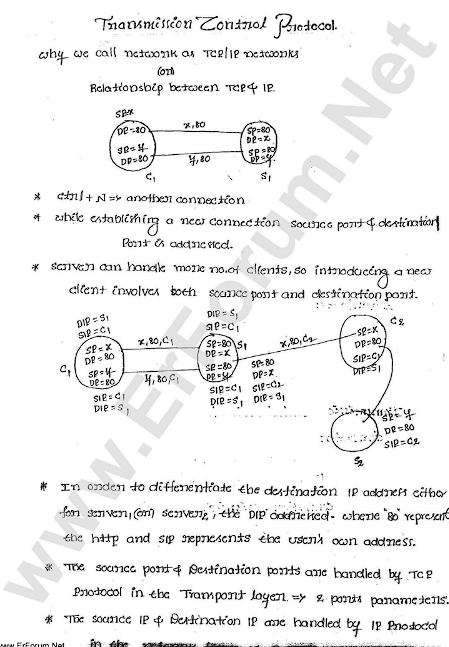 Transmission Control Protocol.
why we call network as TCP/IP networks
(or)
Relationship between TCP & IP.
SP=x
DP=80
x,80
SP=80
DP=x
SP=y
DP=80
y,80
SP=80
DP=y
C1
S1
* ctrl + N => another connection
* while establishing a new connection source port & destination
Port is addressed.
* server can handle more no. of clients, so introducing a new
client involves both source port and destination port.
DIP = S1
SIP = C1
DIP = S1
SIP = C1
C2
x,80,C1
S1
x,80,C2
SP=x
DP=80
SP=80
DP=x
SP=x
DP=80
SIP=C1
DIP=S1
C1
SP=y
DP=80
y,80,C1
SP=80
DP=y
SP=80
DP=x
SIP = C1
DIP = S1
SIP=C1
DIP=S1
SIP=C2
DIP=S1
SP=y
DP=80
SIP=C2
S2
* In order to differentiate the destination IP address either
for server1 (or) server2, the DIP addressed. where "80" represent
the http and SIP represents the user's own address.
* The source port & Destination ports are handled by TCP
Protocol in the Transport layer => 2 ports parameters.
* The source IP & Destination IP are handled by IP Protocol
in the
www.ErForum.Net
www.ErForum.Net